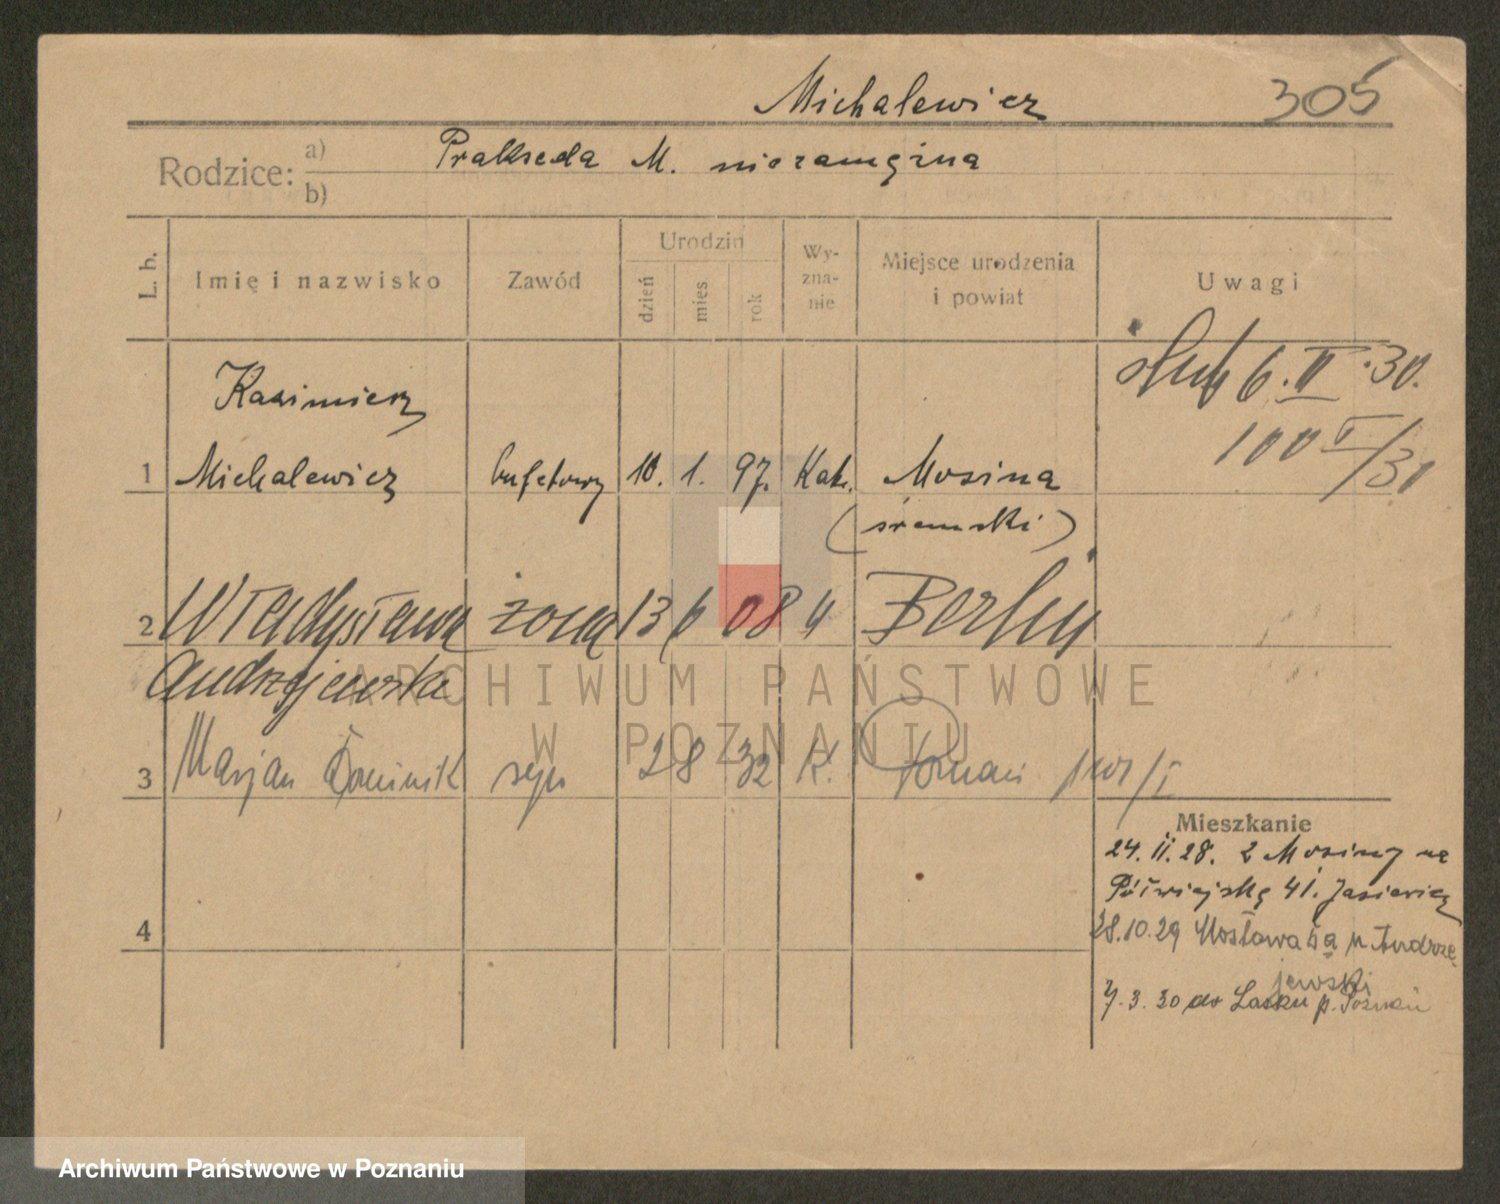 Michalewicz 305
Rodzice: a) Prakseda M. niezamężna
b)
L. b. Imię i nazwisko Zawód Urodzin dzień mies rok Wy-zna-nie Miejsce urodzenia i powiat Uwagi
ślub 6.II.30.
100 I/30
Kazimierz
1 Michalewicz bufetowy 10. 1. 97. Kat. Mosina
(śremski)
2 Władysława żona 13 6 08 Berlin
Andrzejewska
3 Marjan Dominik syn 2 8 32 K. Poznań
4
Mieszkanie
24.II.28. z Mosiny na
Półwiejską 41. Jasiewicz
28.10.29 Mostowa 5a p. Andrze
jewski
7.3.30 do Lasku p. Poznań
ARCHIWUM PAŃSTWOWE
W POZNANIU
Archiwum Państwowe w Poznaniu